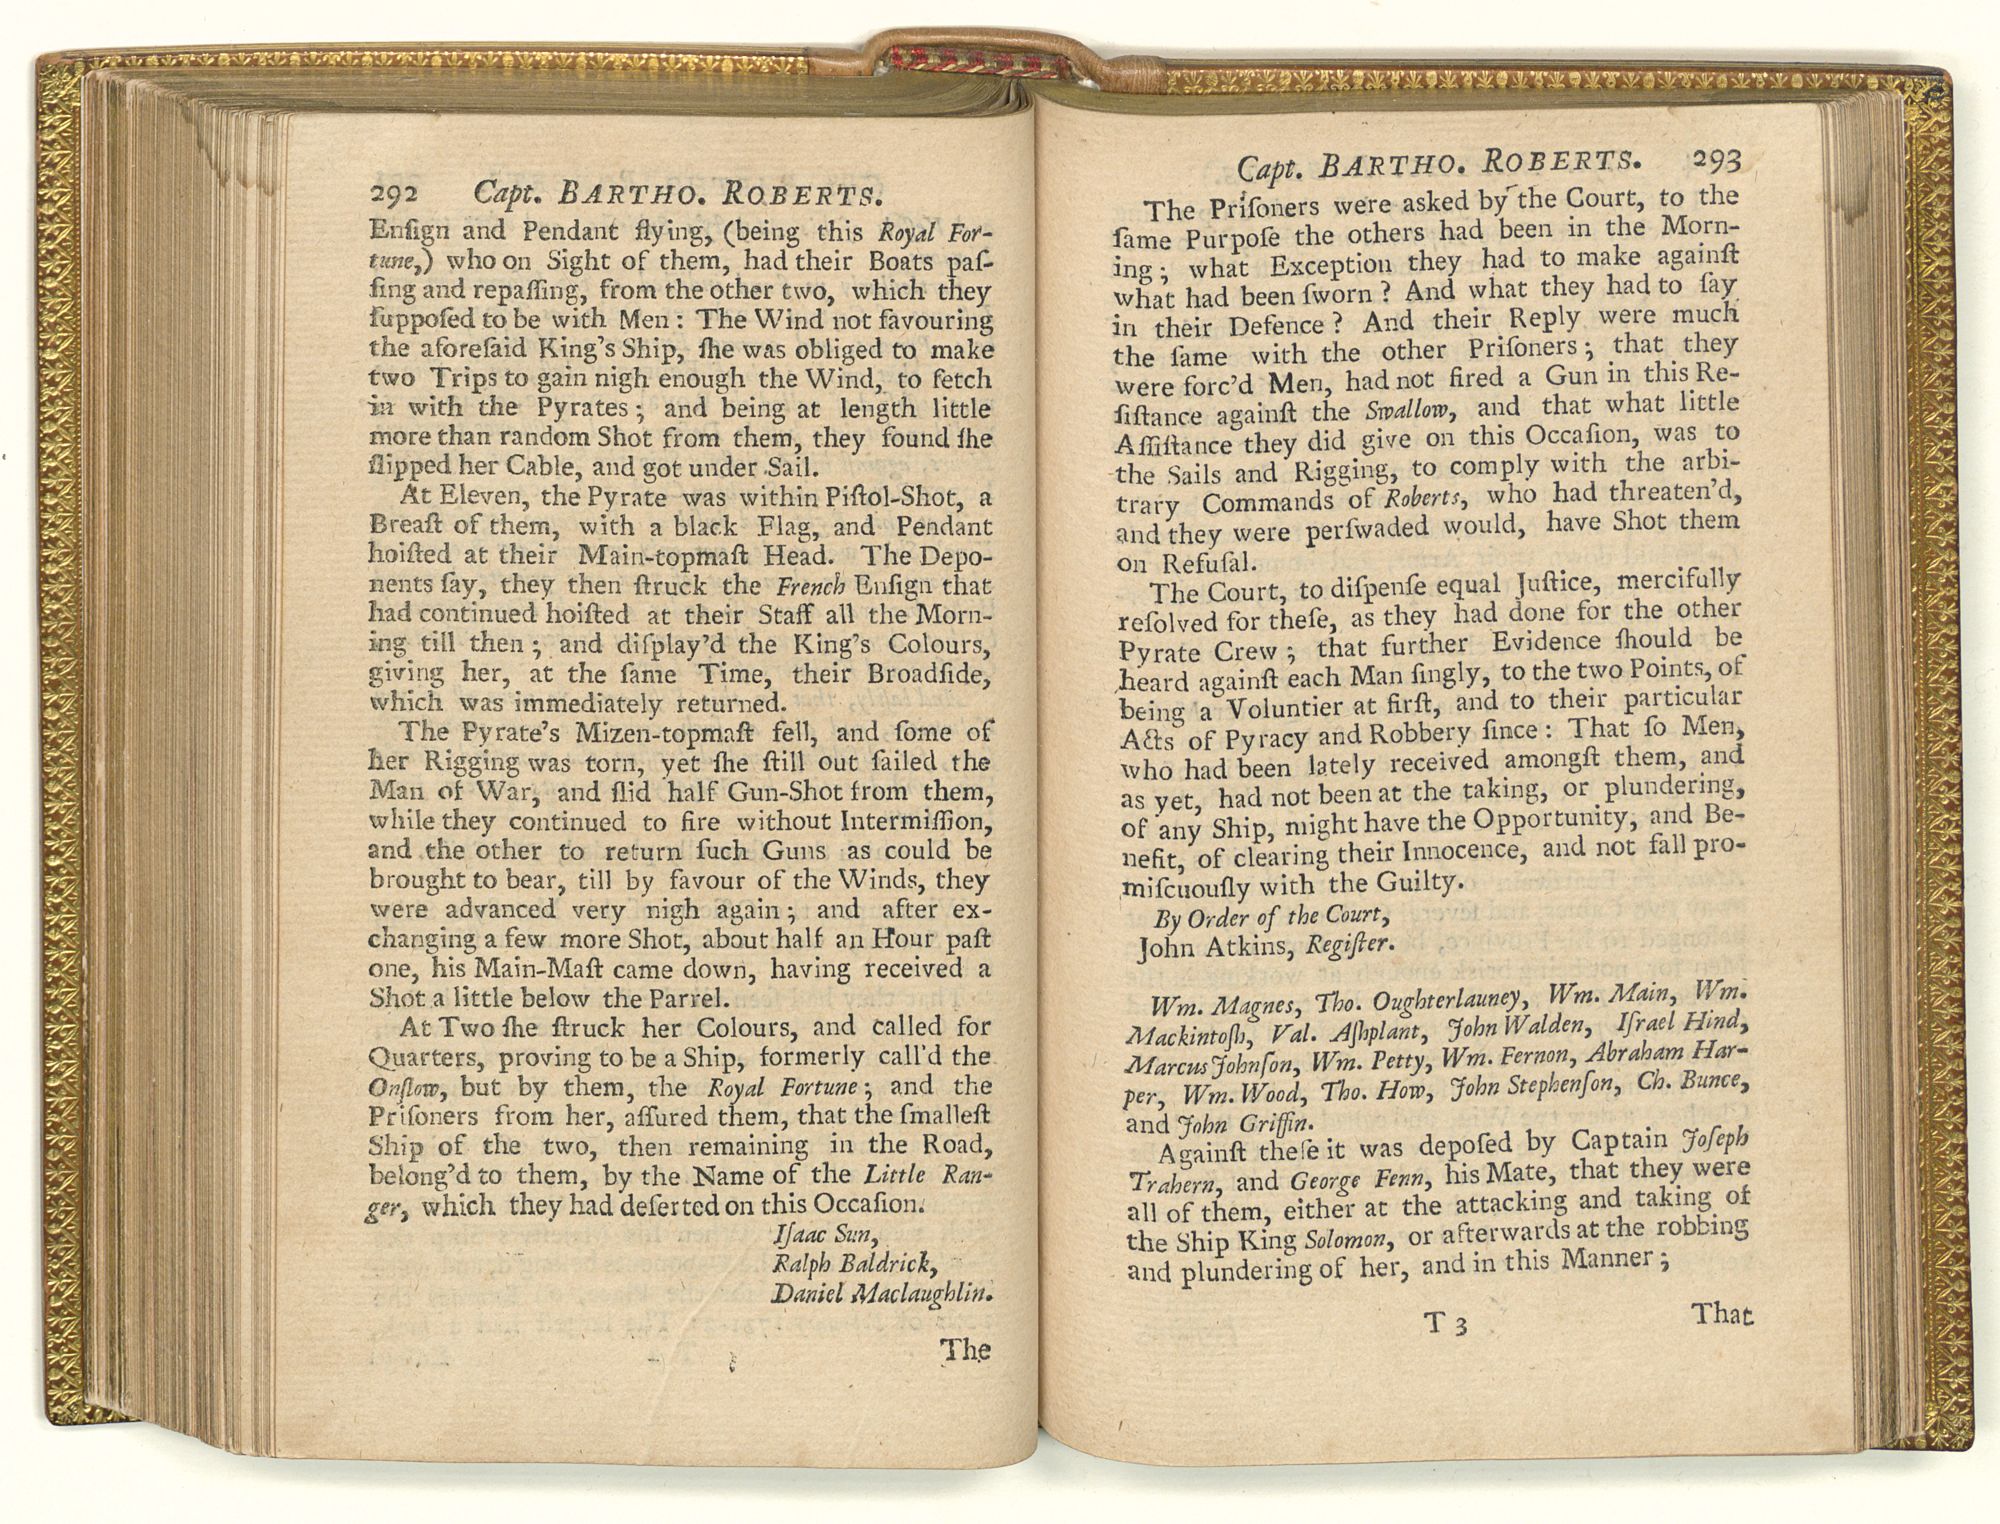 292 Capt. BARTHO. ROBERTS.
Enſign and Pendant flying, (being this Royal For-
tune,) who on Sight of them, had their Boats paſ-
ſing and repaſſing, from the other two, which they
ſuppoſed to be with Men: The Wind not favouring
the aforeſaid King's Ship, ſhe was obliged to make
two Trips to gain nigh enough the Wind, to fetch
in with the Pyrates; and being at length little
more than random Shot from them, they found ſhe
ſlipped her Cable, and got under Sail.
At Eleven, the Pyrate was within Piſtol-Shot, a
Breaſt of them, with a black Flag, and Pendant
hoiſted at their Main-topmaſt Head. The Depo-
nents ſay, they then ſtruck the French Enſign that
had continued hoiſted at their Staff all the Morn-
ing till then; and diſplay'd the King's Colours,
giving her, at the ſame Time, their Broadſide,
which was immediately returned.
The Pyrate's Mizen-topmaſt fell, and ſome of
her Rigging was torn, yet ſhe ſtill out ſailed the
Man of War, and ſlid half Gun-Shot from them,
while they continued to fire without Intermiſſion,
and the other to return ſuch Guns as could be
brought to bear, till by favour of the Winds, they
were advanced very nigh again; and after ex-
changing a few more Shot, about half an Hour paſt
one, his Main-Maſt came down, having received a
Shot a little below the Parrel.
At Two ſhe ſtruck her Colours, and called for
Quarters, proving to be a Ship, formerly call'd the
Onſlow, but by them, the Royal Fortune; and the
Priſoners from her, aſſured them, that the ſmalleſt
Ship of the two, then remaining in the Road,
belong'd to them, by the Name of the Little Ran-
ger, which they had deſerted on this Occaſion.
Iſaac Sun,
Ralph Baldrick,
Daniel Maclaughlin.
The
Capt. BARTHO. ROBERTS. 293
The Priſoners were asked by the Court, to the
ſame Purpoſe the others had been in the Morn-
ing; what Exception they had to make againſt
what had been ſworn? And what they had to ſay
in their Defence? And their Reply were much
the ſame with the other Priſoners; that they
were forc'd Men, had not fired a Gun in this Re-
ſiſtance againſt the Swallow, and that what little
Aſſiſtance they did give on this Occaſion, was to
the Sails and Rigging, to comply with the arbi-
trary Commands of Roberts, who had threaten'd,
and they were perſwaded would, have Shot them
on Refuſal.
The Court, to diſpenſe equal Juſtice, mercifully
reſolved for theſe, as they had done for the other
Pyrate Crew; that further Evidence ſhould be
heard againſt each Man ſingly, to the two Points, of
being a Voluntier at firſt, and to their particular
Acts of Pyracy and Robbery ſince: That ſo Men,
who had been lately received amongſt them, and
as yet, had not been at the taking, or plundering,
of any Ship, might have the Opportunity, and Be-
nefit, of clearing their Innocence, and not fall pro-
miſcuouſly with the Guilty.
By Order of the Court,
John Atkins, Regiſter.
Wm. Magnes, Tho. Oughterlauney, Wm. Main, Wm.
Mackintoſh, Val. Aſhplant, John Walden, Iſrael Hind,
Marcus Johnſon, Wm. Petty, Wm. Fernon, Abraham Har-
per, Wm. Wood, Tho. How, John Stephenſon, Ch. Bunce,
and John Griffin.
Againſt theſe it was depoſed by Captain Joſeph
Trahern, and George Fenn, his Mate, that they were
all of them, either at the attacking and taking of
the Ship King Solomon, or afterwards at the robbing
and plundering of her, and in this Manner;
T 3 That